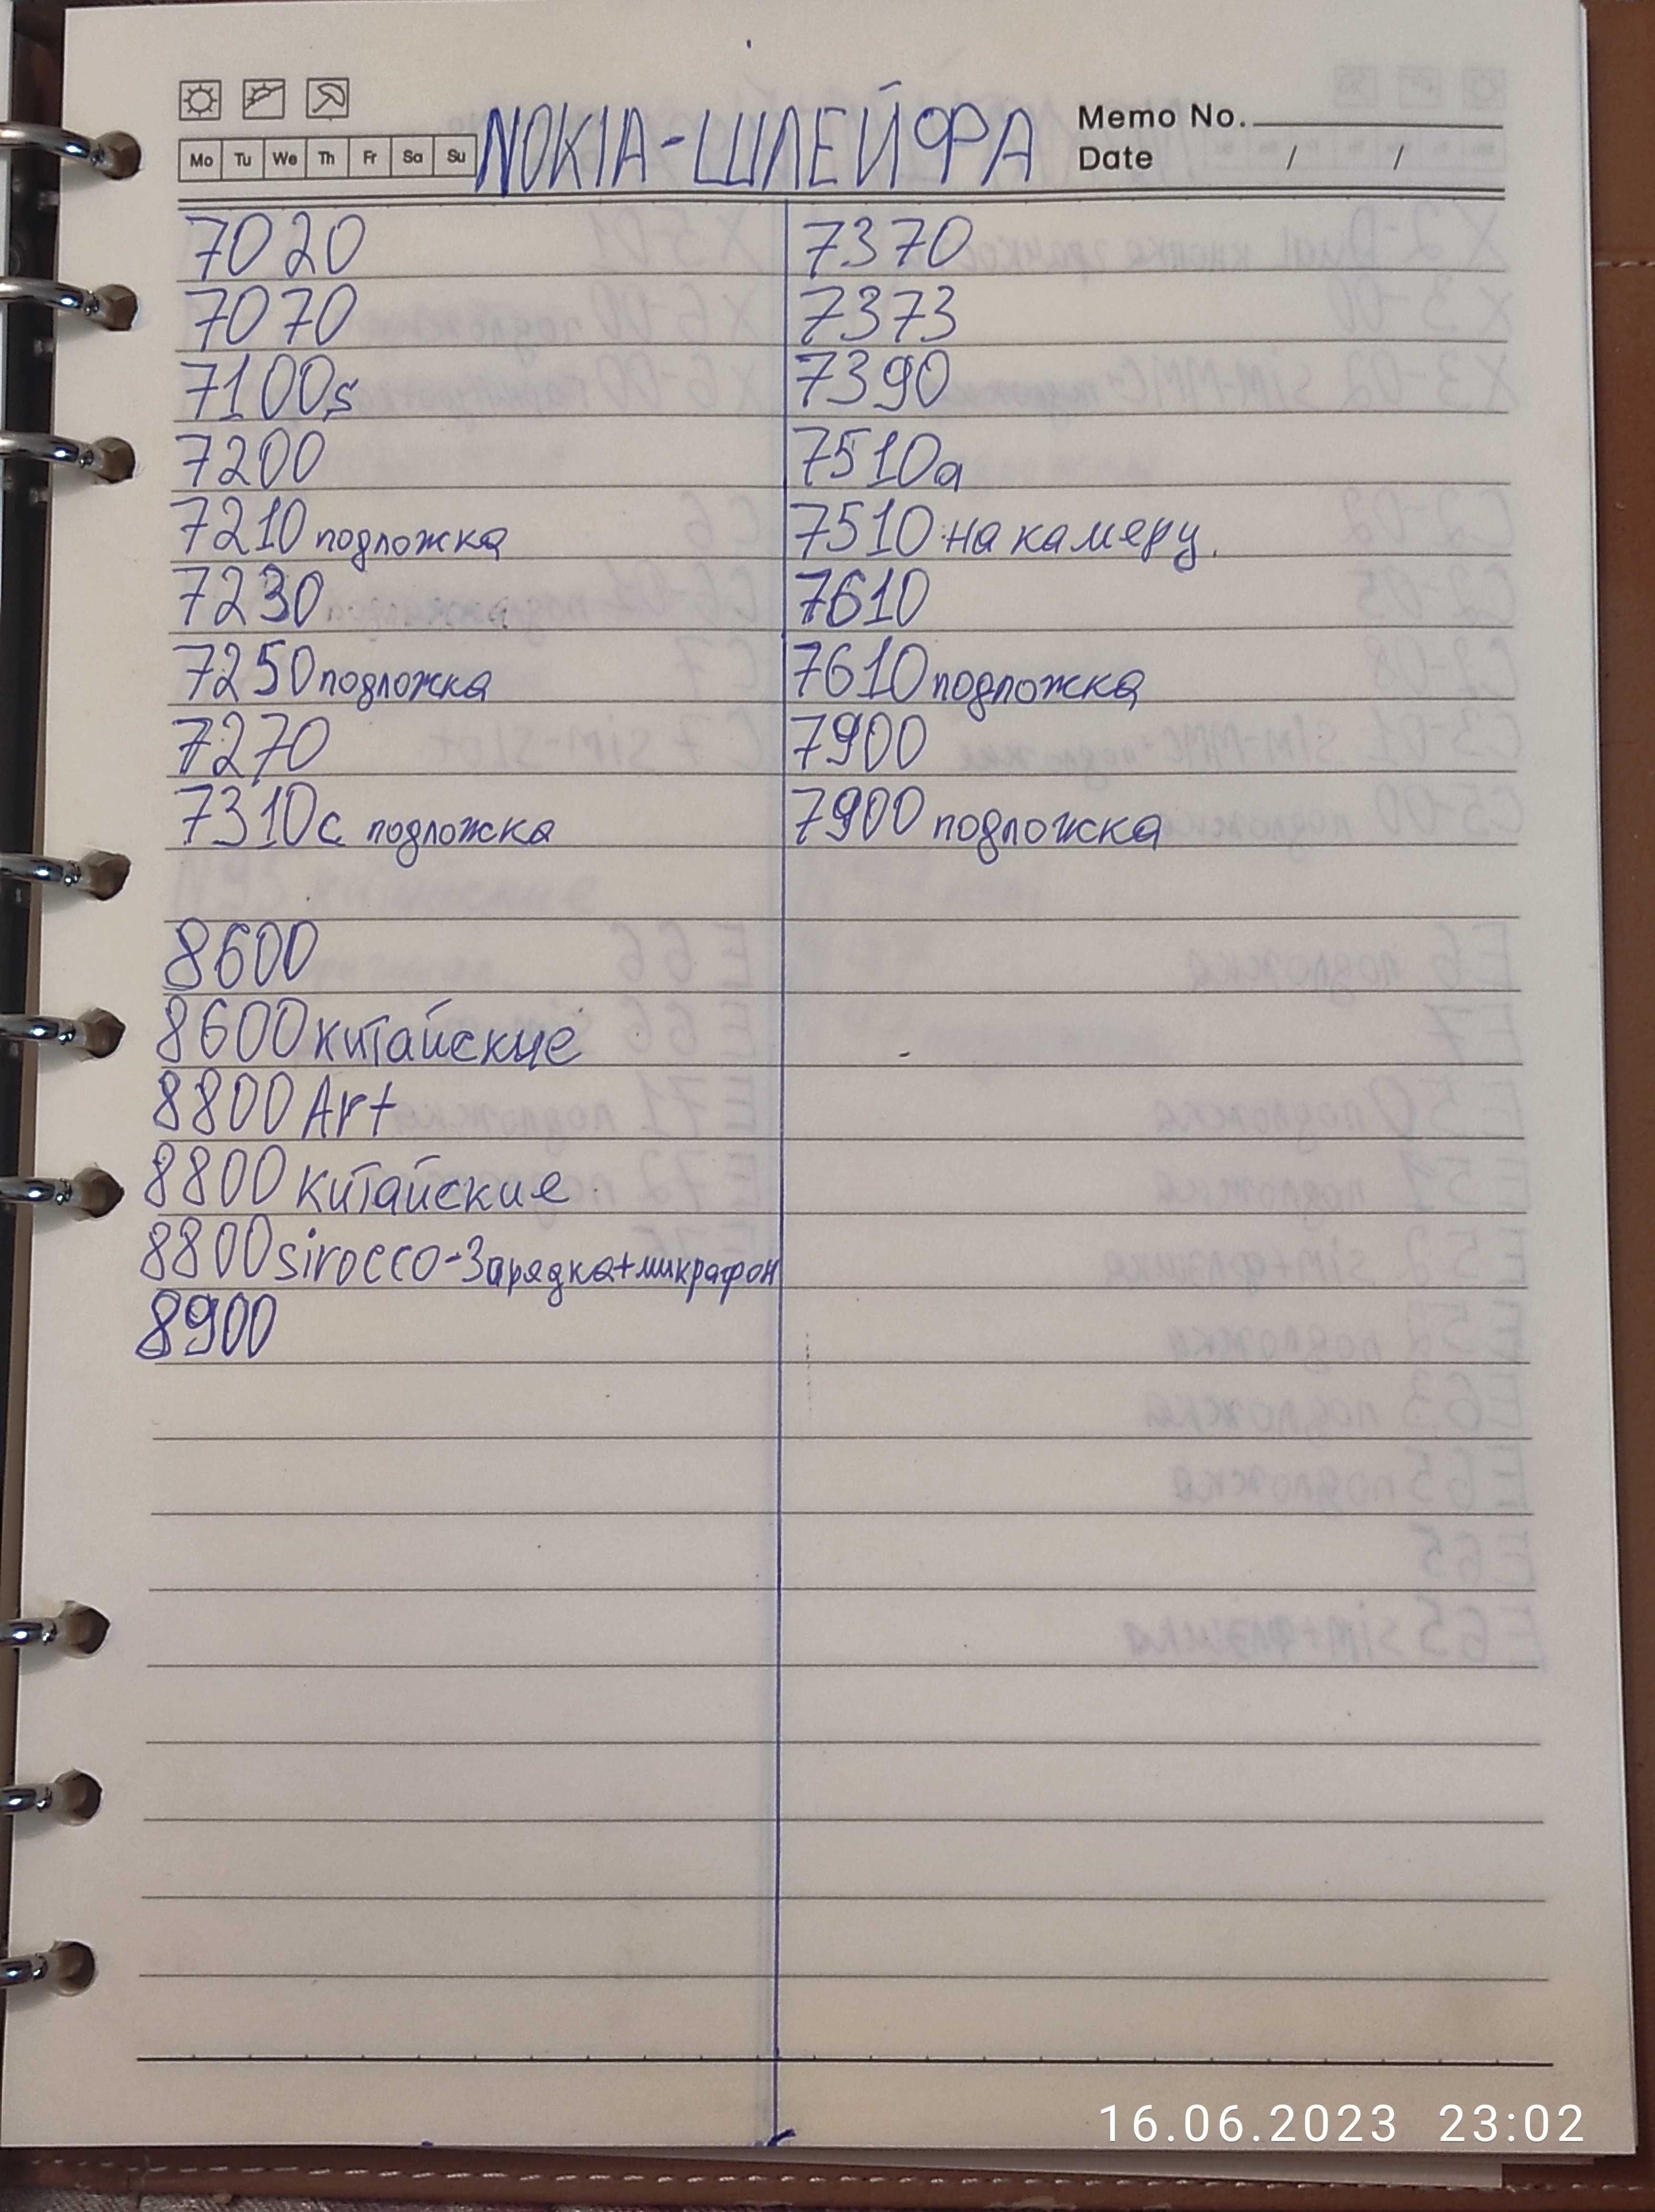 NOKIA-ШЛЕЙФА
Memo No.
Mo Tu We Th Fr Sa Su
Date / /
7020
7070
7100s
7200
7210 подложка
7230
7250 подложка
7270
7310с подложка
8600
8600 китайские
8800 Art
8800 китайские
8800 sirocco-Зарядка+микрафон
8900
7370
7373
7390
7510а
7510 на камеру.
7610
7610 подложка
7900
7900 подложка
16.06.2023 23:02